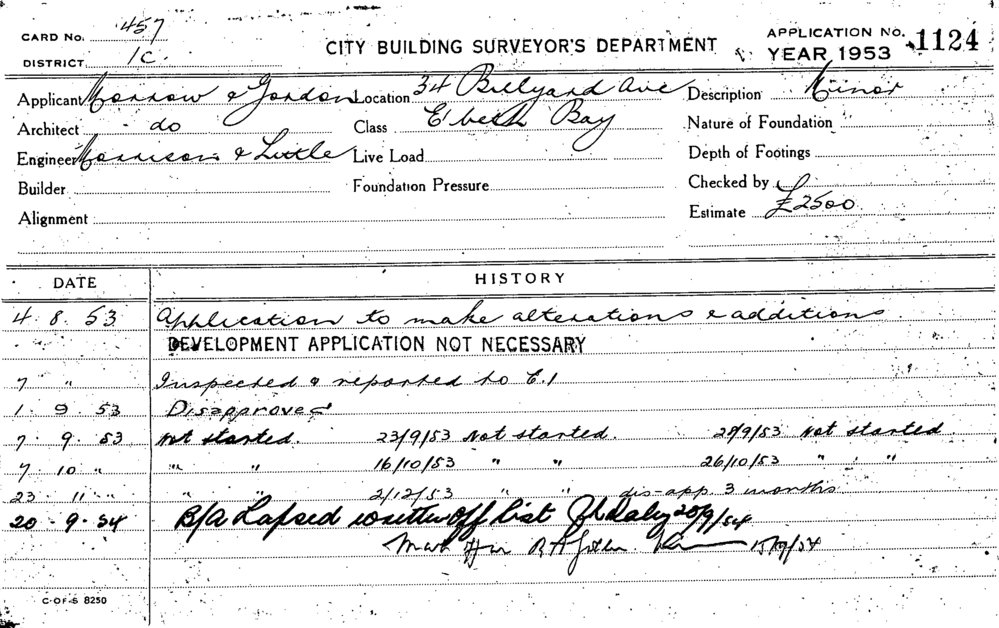 CARD No. 457
DISTRICT 1C.
CITY BUILDING SURVEYOR'S DEPARTMENT
APPLICATION No. 1124
YEAR 1953
Applicant Morrow & Gordon Location 34 Billyard Ave Description Minor
Architect do Class E'beth Bay Nature of Foundation
Engineer Morrison & Little Live Load Depth of Footings
Builder Foundation Pressure Checked by
Alignment Estimate £2500
DATE HISTORY
4. 8. 53 Application to make alterations & additions
DEVELOPMENT APPLICATION NOT NECESSARY
7 " Inspected & reported to C.1
1. 9. 53 Disapproved
7. 9. 53 Not started. 23/9/53 Not started. 29/9/53 Not started
7 10 " " " 16/10/53 " " 26/10/53 " "
23 11 " " " 2/12/53 " " dis-app. 3 months
20. 9. 54 B/A Lapsed written off list 20/9/54
C-OF-S 8250